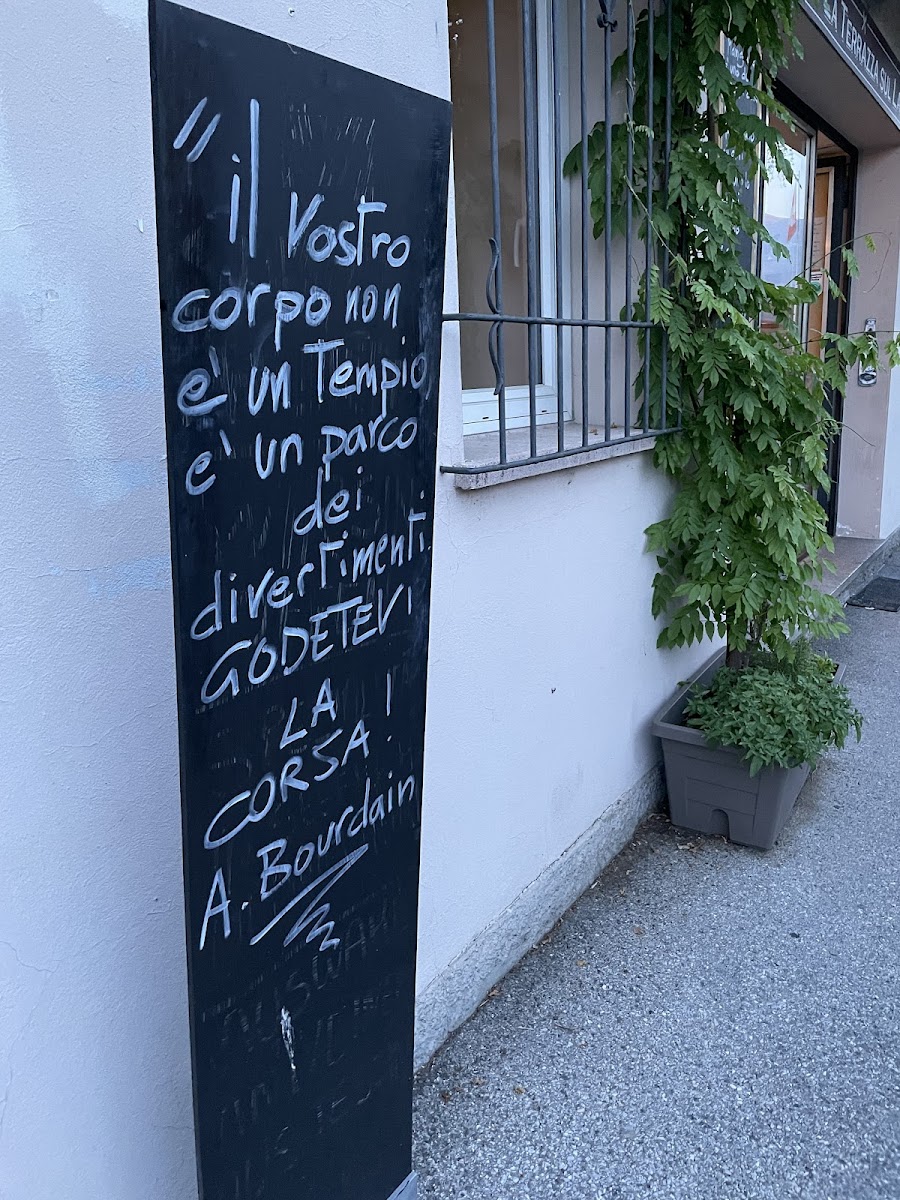 "il Vostro
corpo non
è un Tempio
e' un parco
dei
divertimenti
GODETEVI
LA
CORSA!
A. Bourdain
LA TERRAZZA SUL